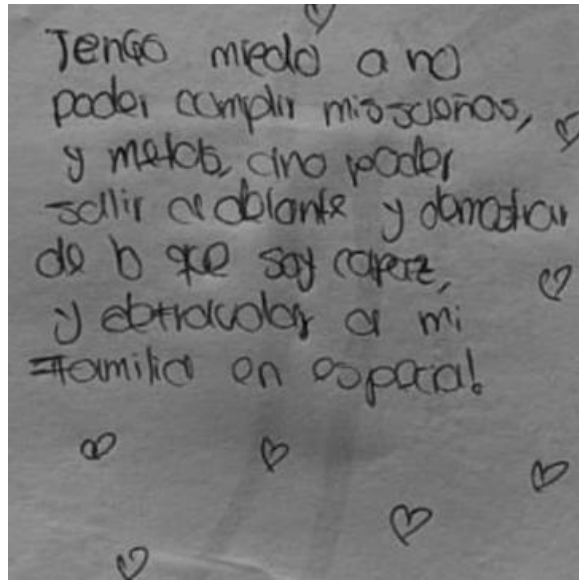 Tengo miedo a no
poder cumplir mis sueños,
y metas, a no poder
salir adelante y demostrar
de lo que soy capaz,
y a mi
familia en especial